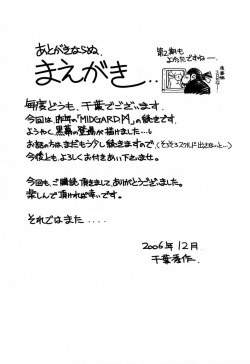 あとがきならぬ、
まえがき..
第2期も
よかったですねー。
毎度どうも、千葉でございます。
今回は、昨年の「MIDGARD.M」の続きです。
ようやく、黒幕の登場が描けました...。
お話の方は、まだもう少し続きますので、
今後とも、よろしくお付きあい下さいませ。
今回も、ご購読頂きまして、ありがとうございました。
楽しんで頂ければ幸いです。
それではまた....
2006年12月
千葉秀作.